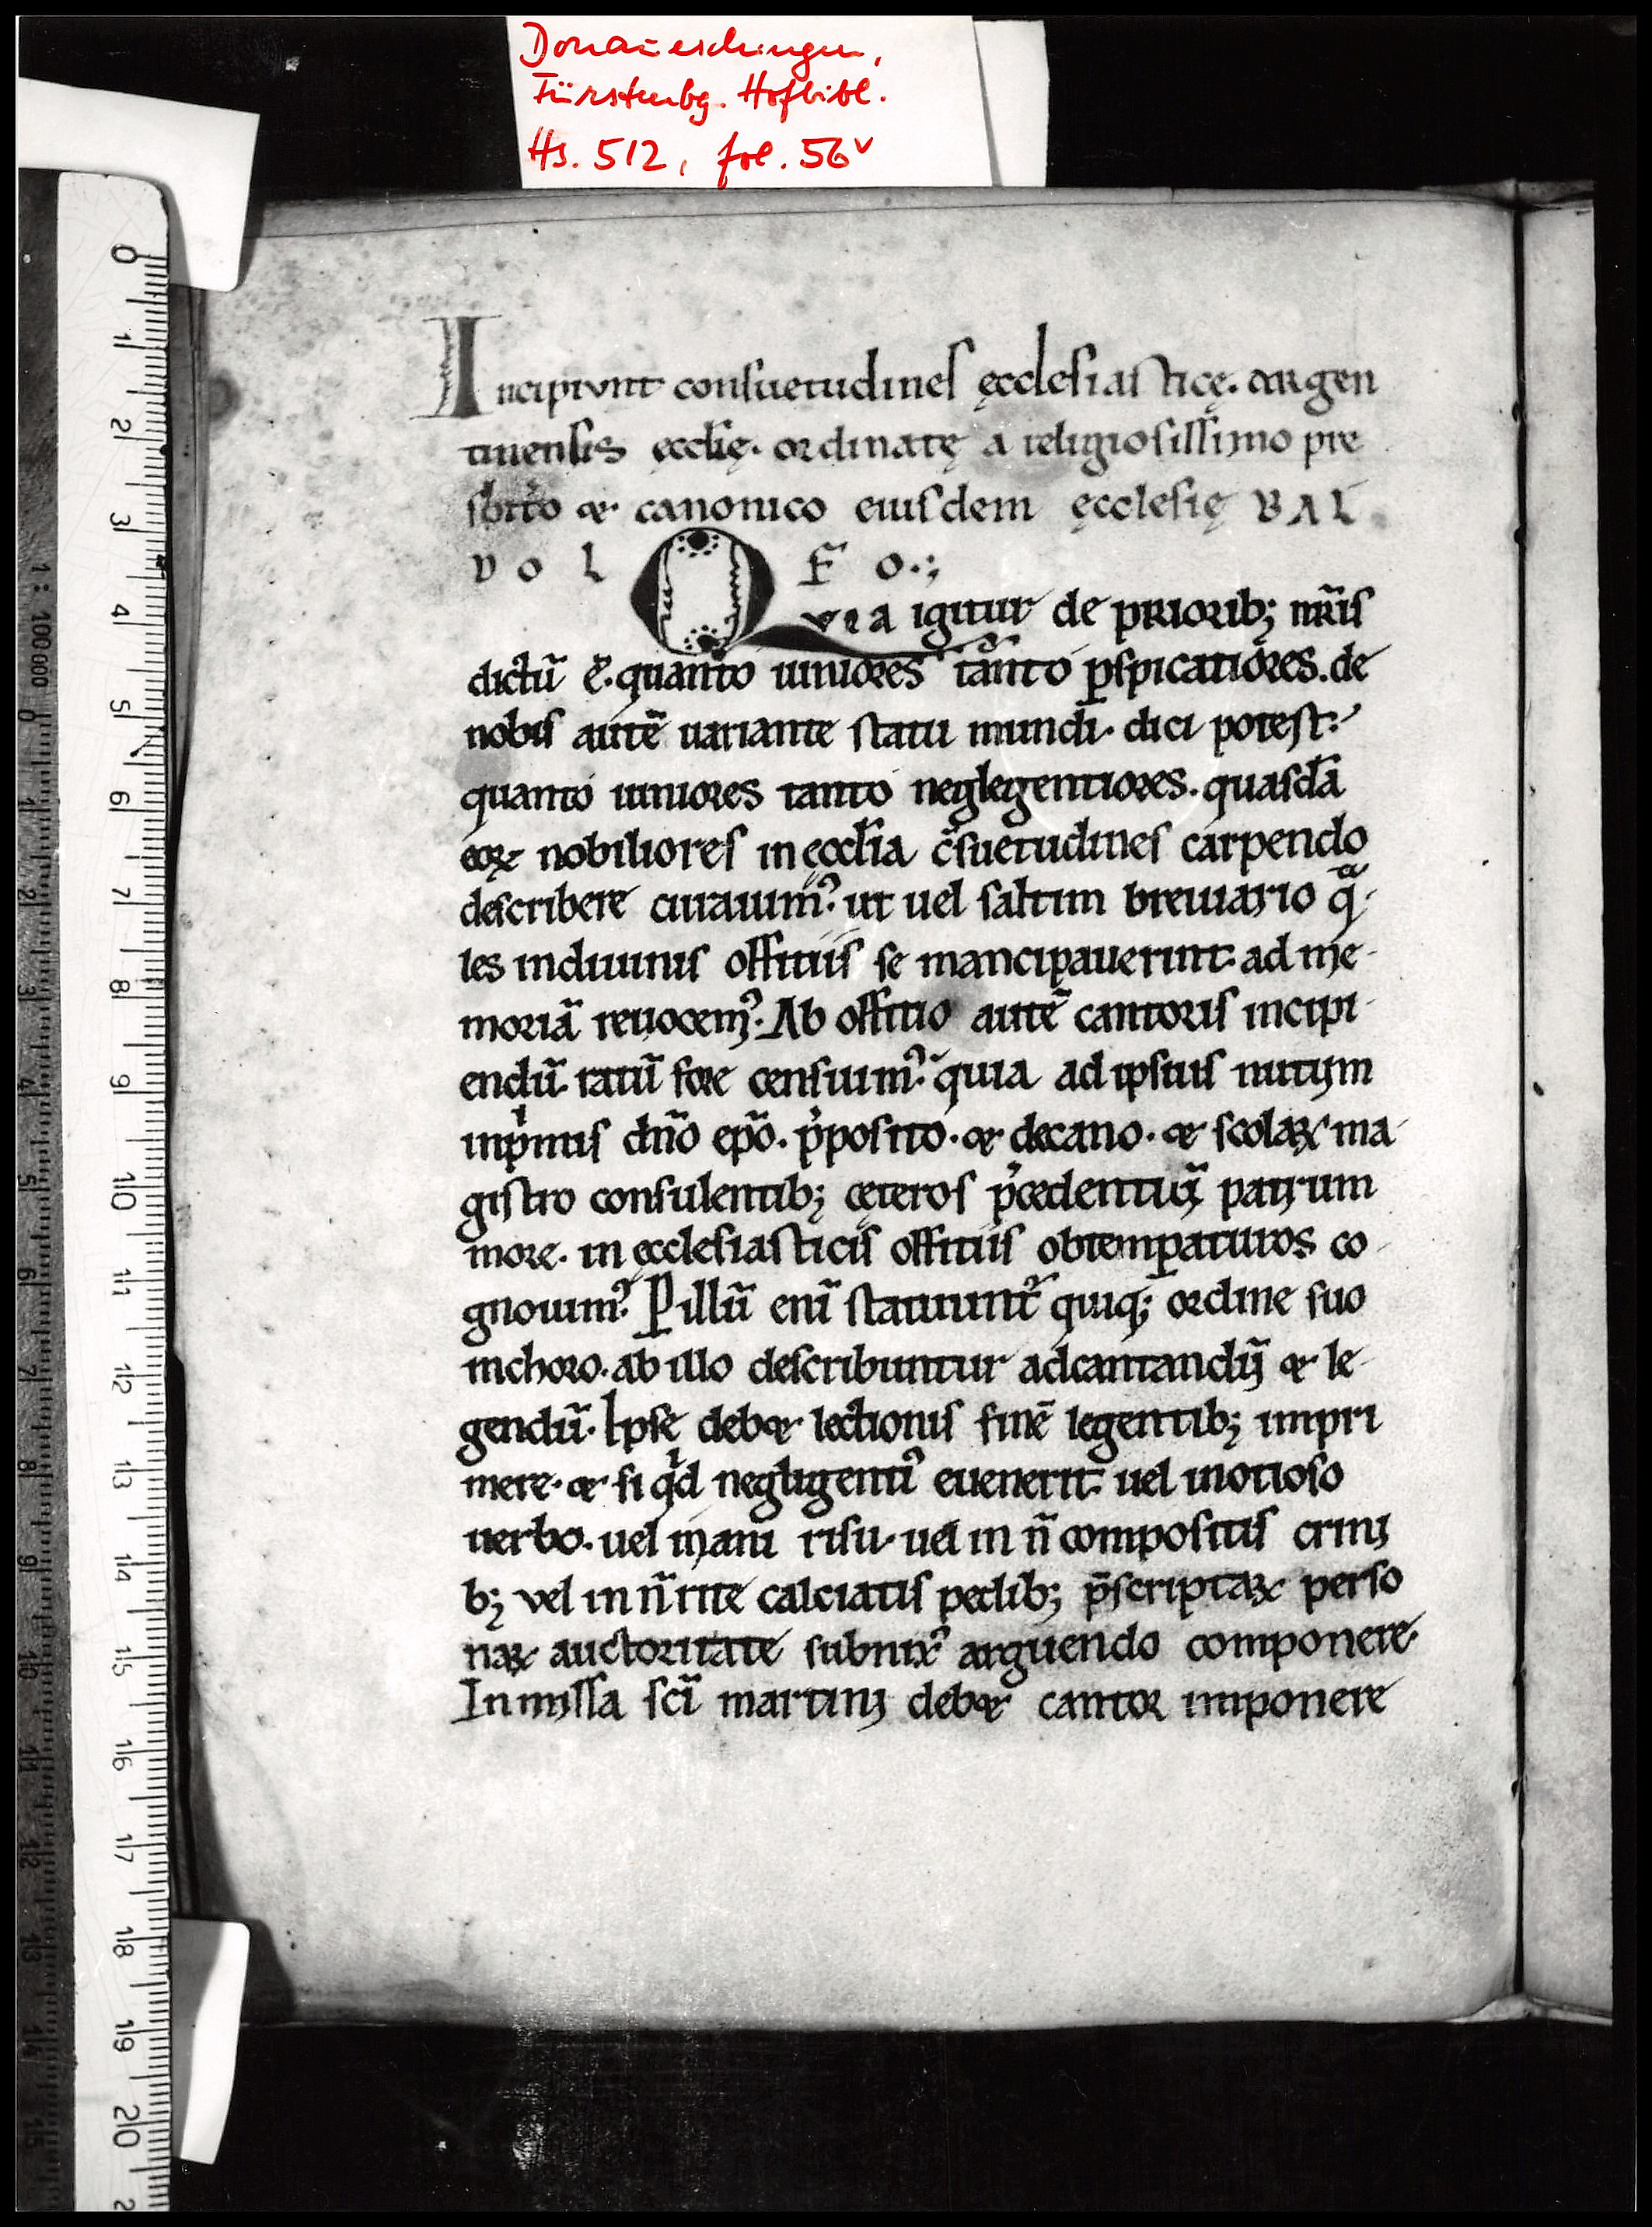 Donaueschingen,
Fürstenbg. Hofbibl.
Hs. 512, fol. 56v
Incipivnt consuetudines ęcclesiasticę. argen
tinensis ęcclię. ordinatę a religiosissimo pre
sbit̄o et canonico eiusdem ęcclesię BAL
DOLFO.;
Qvia igitur de priorib; nr̄is
dictū ē. quanto iuniores tanto ꝑspicatiores. de
nobis autē uariante statu mundi. dici potest:
quanto iuniores tanto neglegentiores. quasdā
eoꝝ nobiliores in ęcclia c̄suetudines carpendo
describere curauimꝰ. ut uel saltim breuiario qͣ
les indiuinis offitiis se mancipauerint. ad me
moriā reuocemꝰ. Ab offitio autē cantoris incipi
endū. ratū fore censuimꝰ. quia ad ipsius nutum
inpͥmis dn̄o ep̄o. p̄posito. et decano. et scolaꝝ ma
gistro consulentib; cęteros p̄cedentiū patrum
more. in ęcclesiasticis offitiis obtemꝑaturos co
gnouimꝰ. Ꝑ illū enī statuunt̄ quiq; ordine suo
inchoro. ab illo describuntur adcantandū et le
gendū. Ipse debet lectionis finē legentib; impri
mere. et si qͥd negligentiꝰ euenerit. uel inotioso
uerbo. uel inani risu. uel in n̄ compositis crini
b; vel in n̄ rite calciatis pedib; p̄scriptaꝝ perso
naꝝ auctoritate subnixꝰ arguendo componere.
In missa sc̄i martini debet cantor imponere
0
1
2
3
4
5
6
7
8
9
10
11
12
13
14
15
16
17
18
19
20
1 : 100000
0
1
2
3
4
5
6
7
8
9
10
11
12
13
14
15